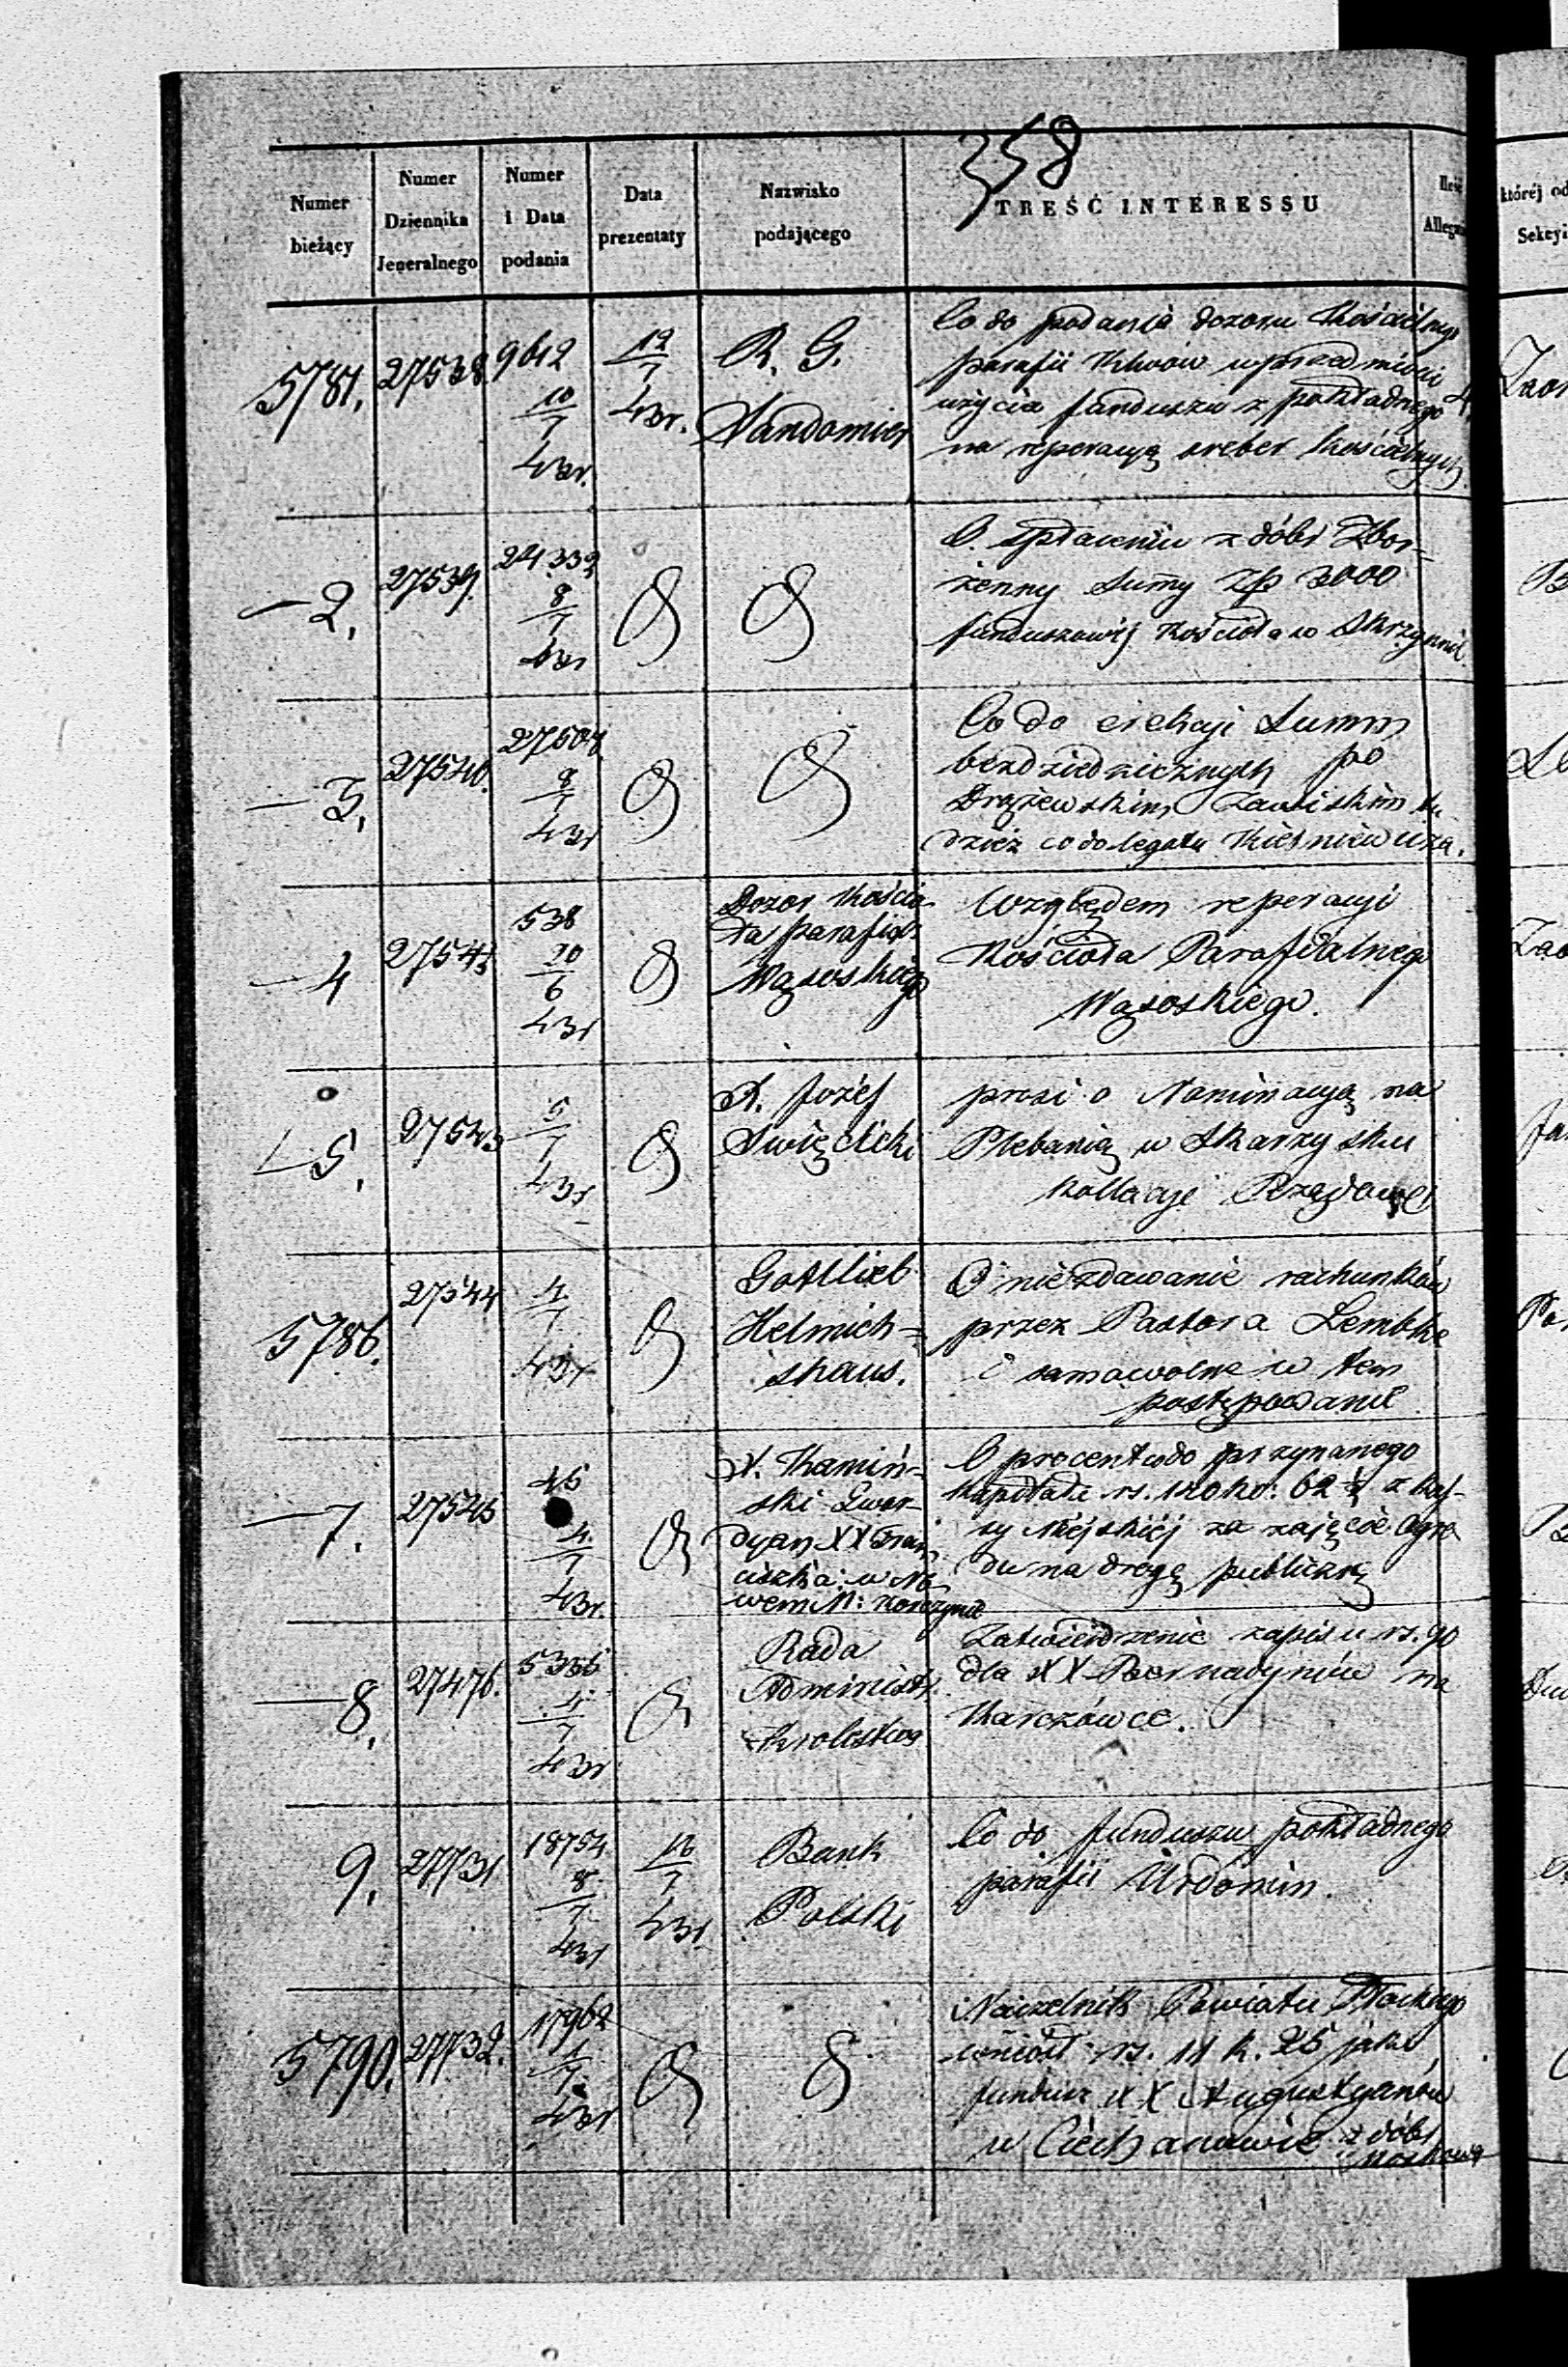 358
Numer bieżący
Numer Dziennika Jeneralnego
Numer i Data podania
Data prezentaty
Nazwisko podającego
TREŚĆ INTERESSU
Ilość
której
Sekcyi
5781. 27538. 9612 10/7 43r. 12/7 43r. R. G. Sandomier
Co do podania dozoru Kościelnego
parafii Klwów w przedmiocie
użycia funduszu z pokładnego
na reperacyą sreber Kościelnych
— 2. 27539. 24339 8/7 43r
O. spłaceniu z dóbr Zbor-
żenny Summy Zp 3000
funduszowéj Kościoła w Skrzynnie
— 3. 27540. 8/7 43r
Co do Summ
bezdziedzicznych po
tu-
dzież co do legatu
— 4 538 20/6 43r
Dozor Kościo-
ła parafial:
Wąsoskiego
Względem reperacyi
Kościoła Parafialnego
Wąsoskiego.
— 5. 27543 5/7 43r
X. Józef
Swięcicki
prosi o Nominacyą na
Plebanią w Skarzysku
Kollacyi Rządowej
5786. 27544 4/7 43r
Gottlieb
Helmich=
shaus.
O niezdawanie rachunków
przez Pastora Lembke
i samowolne w tem
postępowanie
— 7. 27545 45 4/7 43r.
X. Kamiń-
ski Gwar-
dyan XX Fran
ciszka: w No
wem M: Korczynie
O procent od przyznanego
Kapitału rs. 120 ko: 62 ½ z Kas-
sy Miejskiéj za zajęcie Ogro
du na drogę publiczną
— 8. 27476. 4/7 43r
Rada
Administr.
Krolestwa
Zatwierdzenie zapisu rs. 90
dla XX Bernadynów na
Karczówce.
9. 27731 18754 8/7 43r 16/7 43r.
Bank
Polski
Co do funduszu pokładnego
parafii Urdomin.
5790. 27732. 17962 1/7 43r
Naczelnik Powiatu Płockiego
wniósł rs. 11 k. 25 jako
fundusz XX Augustyanów
w Ciechanowie z dóbr